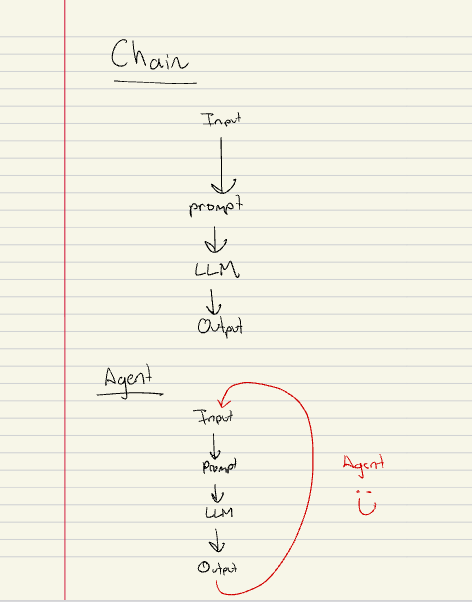 Chain
Input
prompt
LLM
Output
Agent
Input
Prompt
LLM
Output
Agent